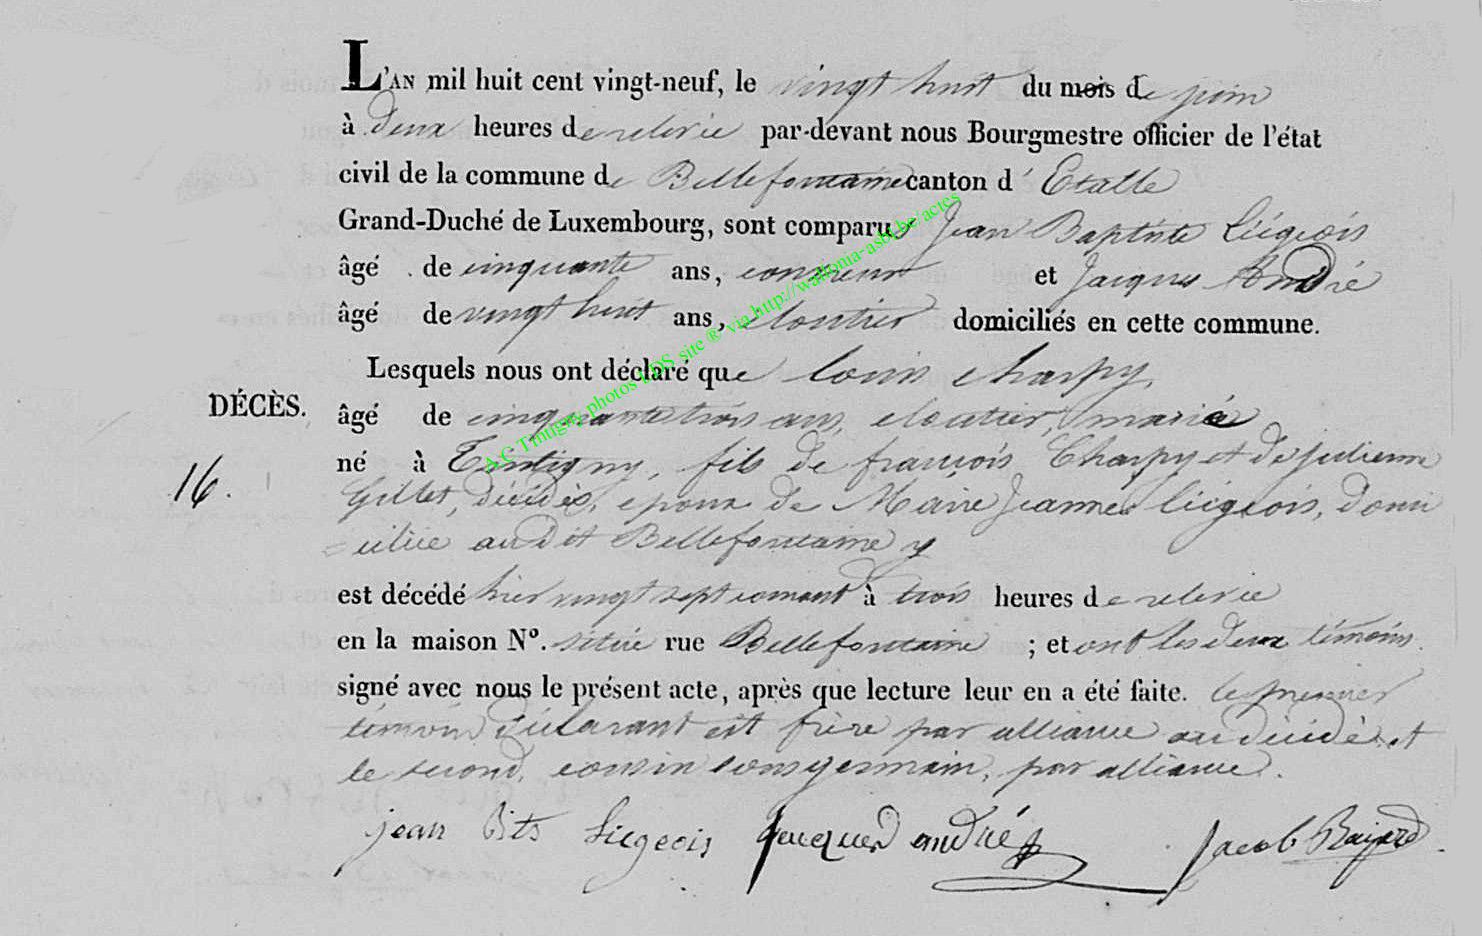 L'AN mil huit cent vingt-neuf, le vingt huit du mois de juin
à deux heures de relevée par-devant nous Bourgmestre officier de l'état
civil de la commune de Bellefontaine canton d' Etalle
Grand-Duché de Luxembourg, sont comparus Jean Baptiste Liégeois
âgé de cinquante ans, et Jacques André
âgé de vingt huit ans, cloutier domiciliés en cette commune.
Lesquels nous ont déclaré que Louis Charpy,
DÉCÈS.
âgé de cinquante trois ans, cloutier, marié
né à Tintigny, fils de françois Charpy et de julienne
16.
Gillet, décédés, epoux de Marie Jeanne Liégeois, domi
= ciliée audit Bellefontaine
est décédé hier vingt sept courant à trois heures de relevée
en la maison N°. située rue Bellefontaine ; et ont les deux témoins
signé avec nous le présent acte, après que lecture leur en a été faite. le premier
témoin déclarant est frère par alliance au décédé et
le second, cousin sousgermain, par alliance.
jean Bts Liegeois jacques andré Jacob Bajard
A.C Tintigny photos LDS site ® via http://wallonia-asbl.be/actes